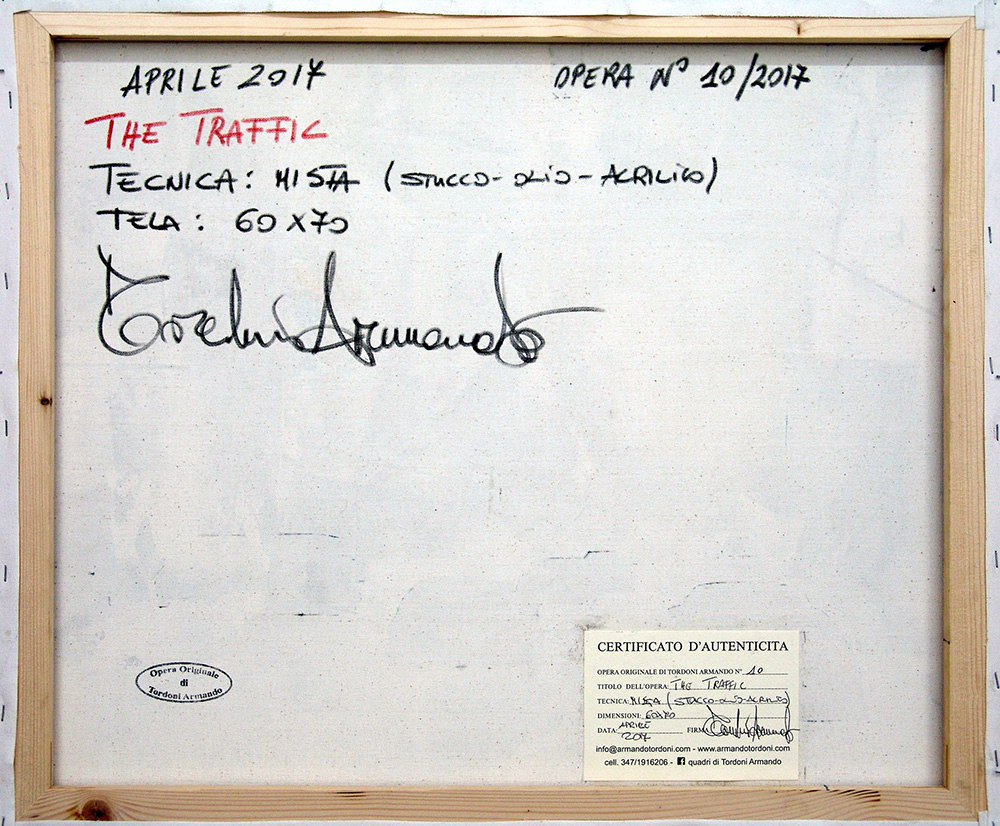 APRILE 2017
OPERA N° 10/2017
THE TRAFFIC
TECNICA: MISTA (STUCCO-OLIO-ACRILICO)
TELA: 60x70
Tordoni Armando
Opera Originale
di
Tordoni Armando
CERTIFICATO D'AUTENTICITA
OPERA ORIGINALE DI TORDONI ARMANDO N° 10
TITOLO DELL'OPERA: THE TRAFFIC
TECNICA: MISTA (STUCCO-OLIO-ACRILICO)
DIMENSIONI: 60x70
DATA APRILE 2017 FIRMA Tordoni Armando
info@armandotordoni.com - www.armandotordoni.com
cell. 347/1916206 - f quadri di Tordoni Armando